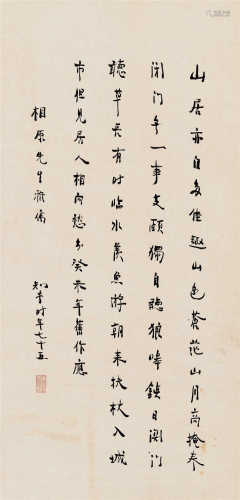 山居亦自多佳趣山色蒼茫山月高掩卷
閉門無一事支頤獨自聽狼嗥鎮日關門
聽草長有時臨水羨魚游朝來扶杖入城
市但見居人相向愁癸未年舊作應
相原先生雅屬
知堂時年七十五